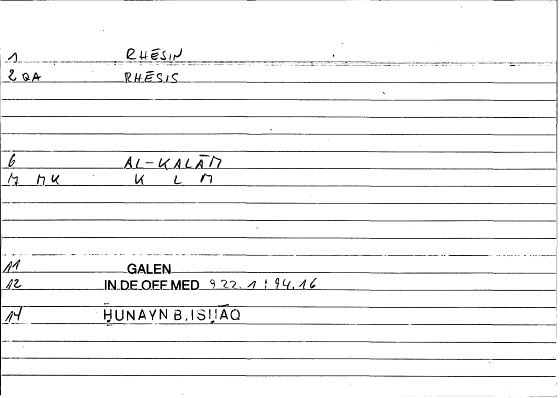 1 RHĒSIN
2 QA RHĒSIS
6 AL-KALĀM
M MK K L M
11 GALEN
12 IN.DE OFF MED 922.1:94.16
14 ḤUNAYN B.ISḤĀQ